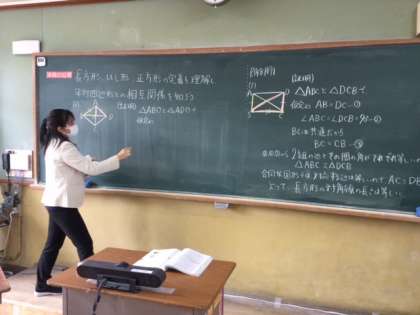 長方形、ひし形、正方形の定義を理解し
平行四辺形との相互関係を知ろう
(証明)
△ABOと△ADOで
仮定より
(証明)
△ABCと△DCBで
仮定より AB=DC-①
∠ABC=∠DCB=90°-②
BCは共通だから
BC=CB-③
2組の辺とその間の角がそれぞれ等しい
△ABC≡△DCB
合同な図形では対応する辺は等しいので AC=DB
よって、長方形の対角線の長さは等しい。